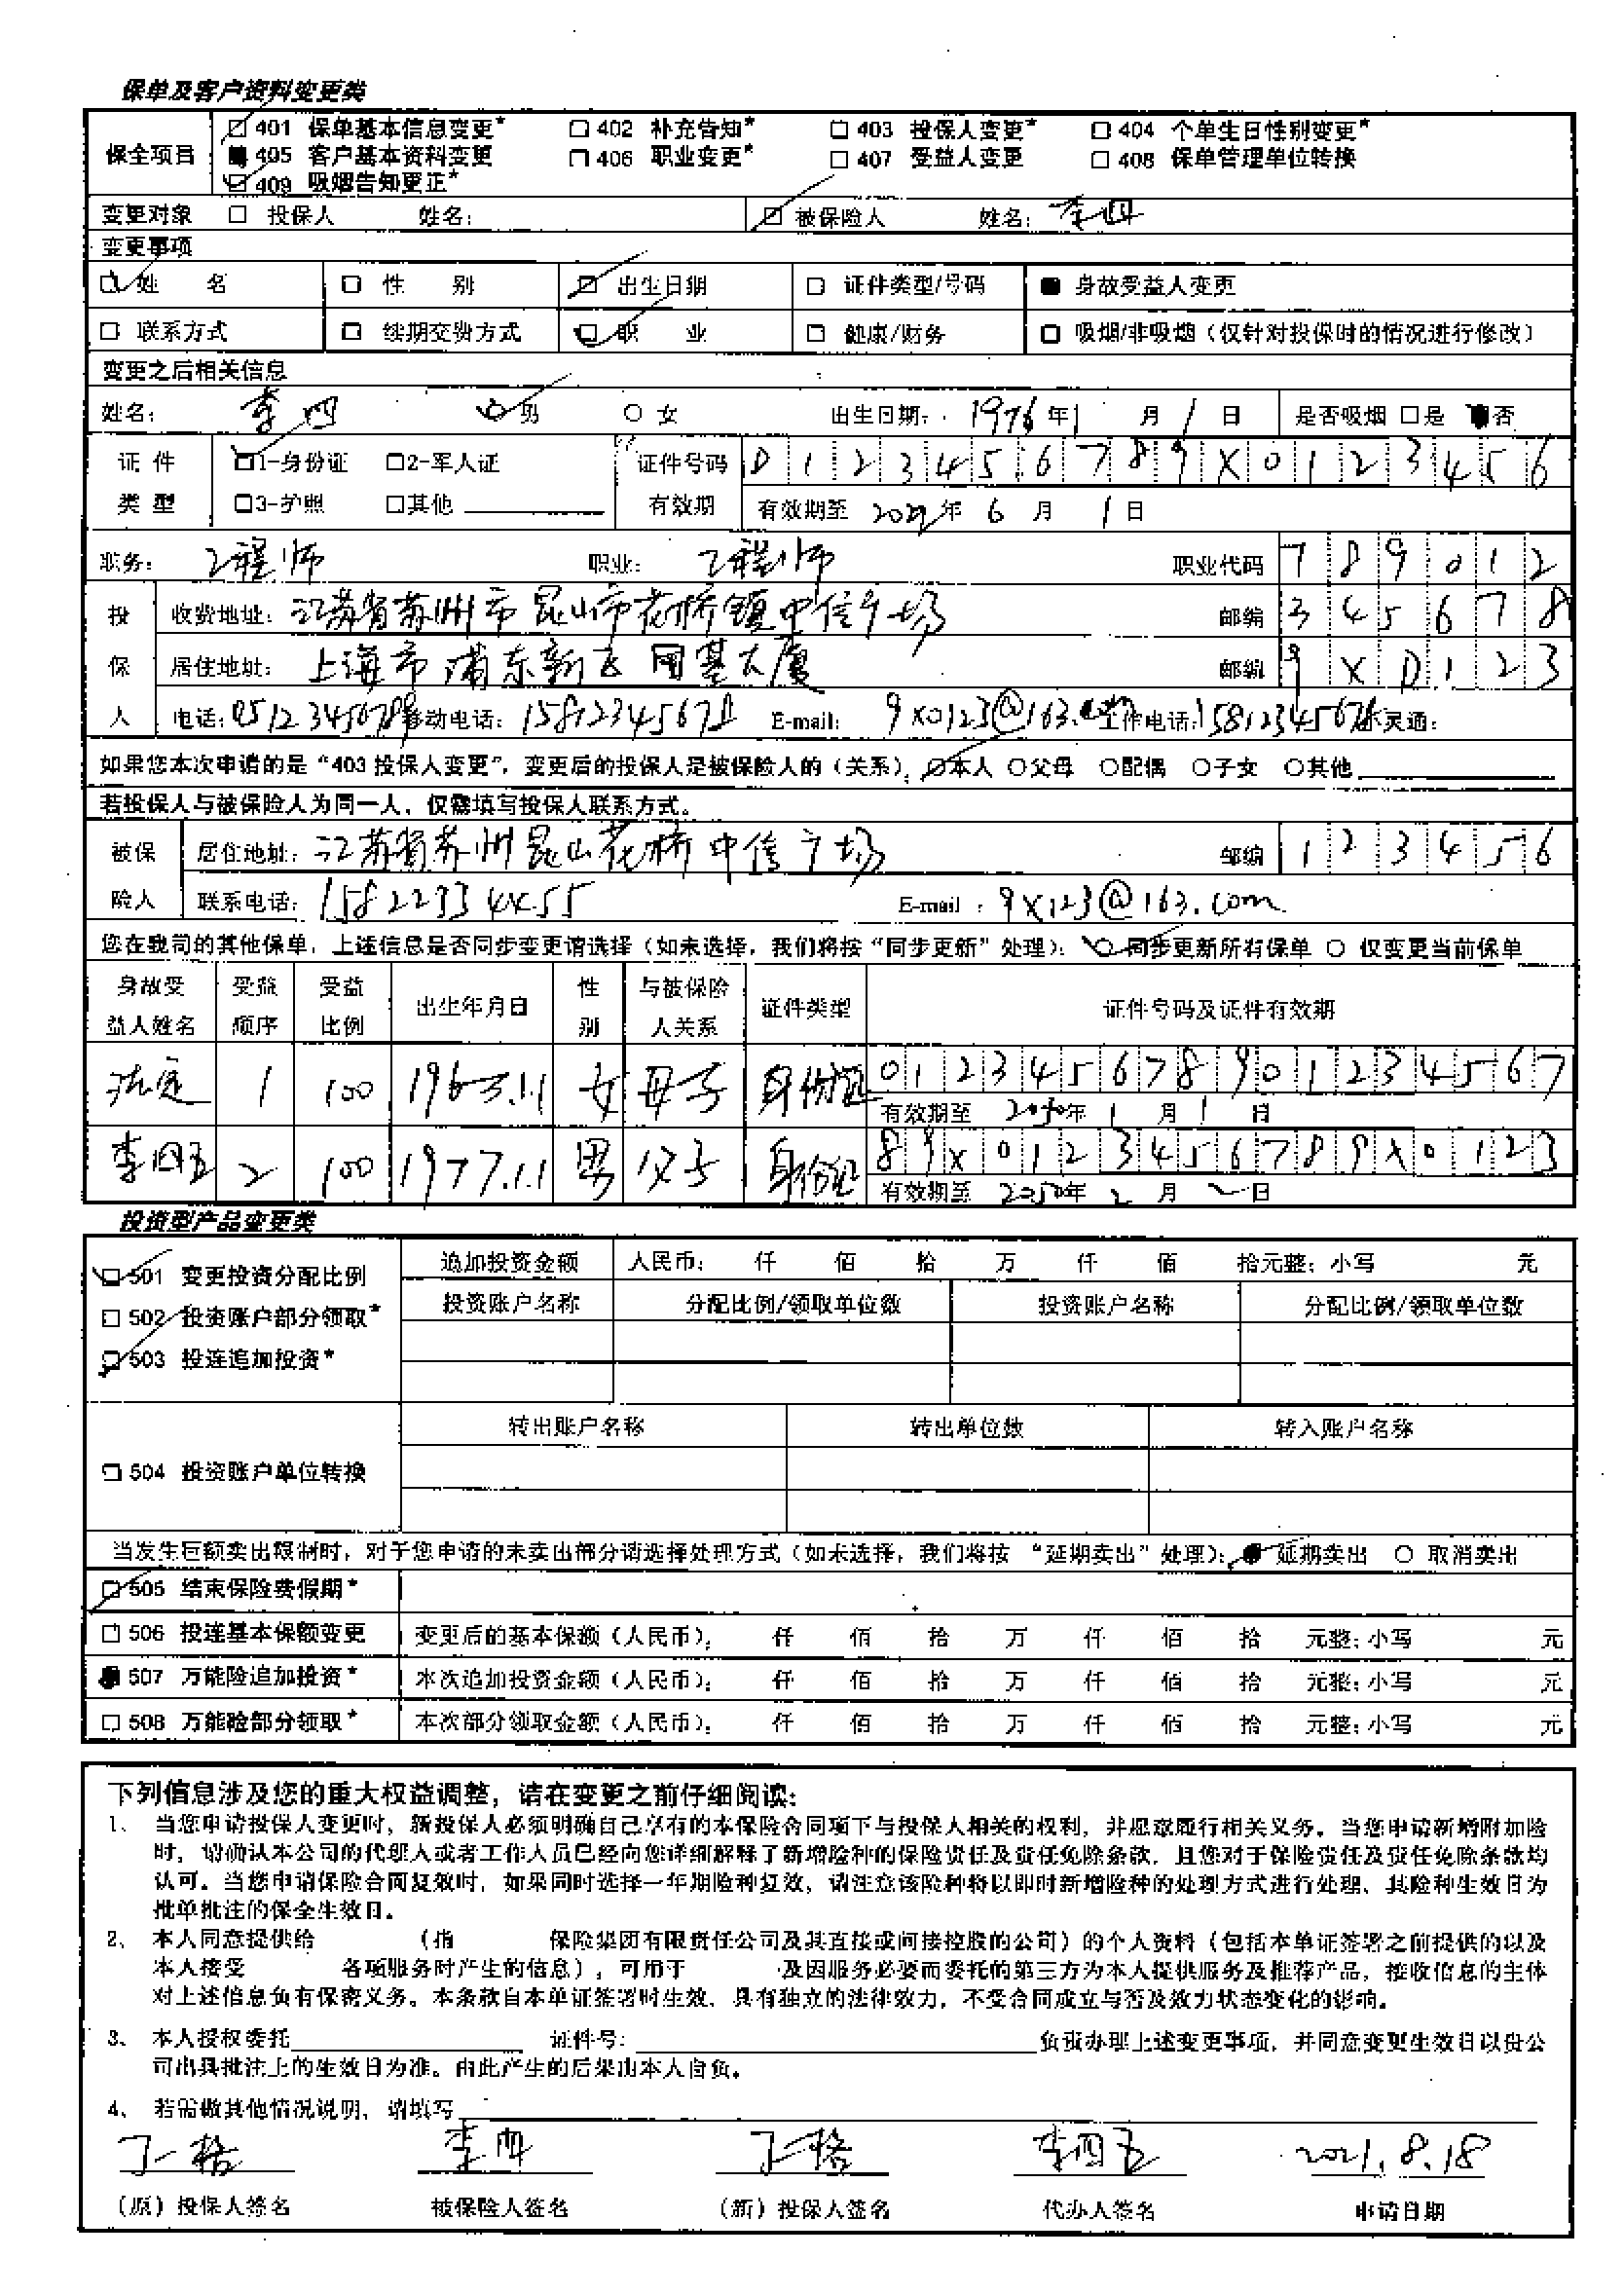 保单及客户资料变更类
保全项目 401 保单基本信息变更* 402 补充告知* 403 投保人变更* 404 个单生日性别变更*
405 客户基本资料变更 406 职业变更* 407 受益人变更 408 保单管理单位转换
409 吸烟告知更正*
变更对象 投保人 姓名: 被保险人 姓名: 李四
变更事项
姓 名 性 别 出生日期 证件类型/号码 身故受益人变更
联系方式 续期交费方式 职 业 健康/财务 吸烟/非吸烟（仅针对投保时的情况进行修改）
变更之后相关信息
姓名: 李四 男 女 出生日期: 1976年1月1日 是否吸烟 是 否
证件 1-身份证 2-军人证 证件号码 0123456789X0123456
类型 3-护照 其他 有效期 有效期至 2022年6月1日
职务: 工程师 职业: 工程师 职业代码 789012
投 收费地址: 江苏省苏州市昆山市花桥镇中信广场 邮编 345678
保 居住地址: 上海市浦东新区国基大厦 邮编 9X0123
人 电话: 05123456789 移动电话: 15812345678 E-mail: 9X0123@163.com 工作电话: 15812345678 小灵通:
如果您本次申请的是“403 投保人变更”，变更后的投保人是被保险人的（关系）: 本人 父母 配偶 子女 其他
若投保人与被保险人为同一人，仅需填写投保人联系方式。
被保 居住地址: 江苏省苏州昆山花桥中信广场 邮编 123456
险人 联系电话: 15822334455 E-mail : 9X123@163.com
您在我司的其他保单，上述信息是否同步变更请选择（如未选择，我们将按“同步更新”处理）: 同步更新所有保单 仅变更当前保单
身故受益人姓名 受益顺序 受益比例 出生年月日 性别 与被保险人关系 证件类型 证件号码及证件有效期
1 100 1963.1.1 女 母子 身份证 012345678901234567
有效期至 2050年1月1日
李四五 2 100 1977.1.1 男 父子 身份证 89X0123456789X0123
有效期至 2050年2月2日
投资型产品变更类
501 变更投资分配比例 追加投资金额 人民币: 仟 佰 拾 万 仟 佰 拾元整: 小写 元
502 投资账户部分领取* 投资账户名称 分配比例/领取单位数 投资账户名称 分配比例/领取单位数
503 投连追加投资*
转出账户名称 转出单位数 转入账户名称
504 投资账户单位转换
当发生巨额卖出限制时，对于您申请的未卖出部分请选择处理方式（如未选择，我们将按 “延期卖出”处理）: 延期卖出 取消卖出
505 结束保险费假期*
506 投连基本保额变更 变更后的基本保额（人民币）: 仟 佰 拾 万 仟 佰 拾 元整: 小写 元
507 万能险追加投资* 本次追加投资金额（人民币）: 仟 佰 拾 万 仟 佰 拾 元整: 小写 元
508 万能险部分领取* 本次部分领取金额（人民币）: 仟 佰 拾 万 仟 佰 拾 元整: 小写 元
下列信息涉及您的重大权益调整，请在变更之前仔细阅读:
1、 当您申请投保人变更时，新投保人必须明确自己享有的本保险合同项下与投保人相关的权利，并愿意履行相关义务。当您申请新增附加险
时，请确认本公司的代理人或者工作人员已经向您详细解释了新增险种的保险责任及责任免除条款，且您对于保险责任及责任免除条款均
认可。当您申请保险合同复效时，如果同时选择一年期险种复效，请注意该险种将以即时新增险种的处理方式进行处理，其险种生效日为
批单批注的保全生效日。
2、 本人同意提供给 （指 保险集团有限责任公司及其直接或间接控股的公司）的个人资料（包括本单证签署之前提供的以及
本人接受 各项服务时产生的信息），可用于 及因服务必要而委托的第三方为本人提供服务及推荐产品，接收信息的主体
对上述信息负有保密义务。本条款自本单证签署时生效，具有独立的法律效力，不受合同成立与否及效力状态变化的影响。
3、 本人授权委托 证件号: 负责办理上述变更事项，并同意变更生效日以贵公
司出具批注上的生效日为准。由此产生的后果由本人自负。
4、 若需做其他情况说明，请填写
丁一格 李四 丁一格 李四五 2021.8.18
（原）投保人签名 被保险人签名 （新）投保人签名 代办人签名 申请日期